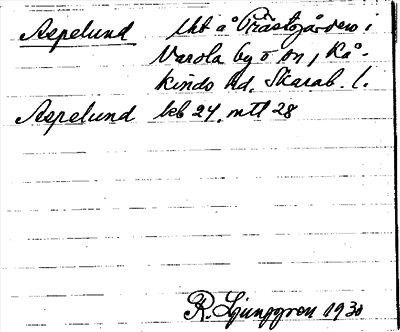 Aspelund lht å Prästgården i
Varola by o sn, Kå-
kinds hd, Skarab. l.
Aspelund kb 24, mtl 28
R. Ljunggren 1930